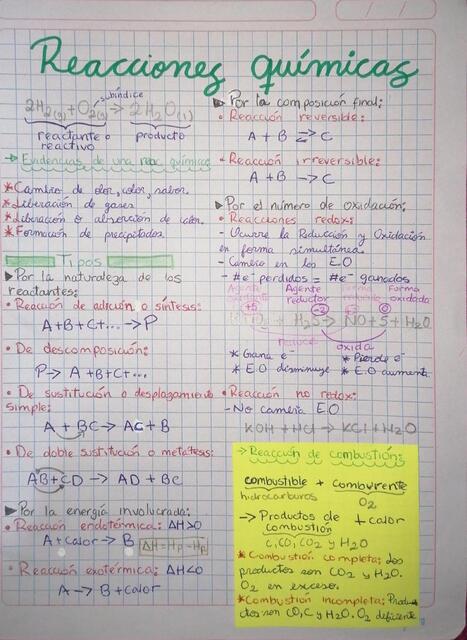 Reacciones químicas
subíndice
2H₂(g) + O₂(g) → 2H₂O(l)
reactante o producto
reactivo
→ Evidencias de una reac. química
* Cambio de olor, color, sabor.
* Liberación de gases
* Liberación o absorción de calor.
* Formación de precipitados.
Tipos
▶ Por la naturaleza de los
reactantes:
• Reacción de adición o síntesis:
A+B+C+...→P
• De descomposición:
P→ A +B+C+...
• De sustitución o desplazamiento
simple:
A + BC→ AC + B
• De doble sustitución o metátesis:
AB+CD → AD + BC
▶ Por la energía involucrada:
• Reacción endotérmica: ΔH>0
A+calor→ B ΔH=Hp - Hr
• Reacción exotérmica: ΔH<0
A→ B+calor
▶ Por la composición final:
• Reacción reversible:
A + B ⇌ C
• Reacción irreversible:
A + B → C
▶ Por el número de oxidación:
• Reacciones redox:
- Ocurre la Reducción y Oxidación
en forma simultánea.
- Cambio en los E.O
- #e⁻ perdidos = #e⁻ ganados
Agente Agente Forma Forma
oxidante reductor reducida oxidada
+5 -2 +2 0
H₂S → NO + S + H₂O
reduce oxida
* Gana e⁻ * Pierde e⁻
* E.O disminuye * E.O aumenta
• Reacción no redox:
- No cambia E.O
KOH + HCl → KCl + H₂O
→ Reacción de combustión:
combustible + comburente
hidrocarburos O₂
→ Productos de + calor
combustión
C, CO, CO₂ y H₂O
* Combustión completa: Los
productos son CO₂ y H₂O.
O₂ en exceso.
* Combustión incompleta: Produc-
tos son CO, C y H₂O. O₂ deficiente